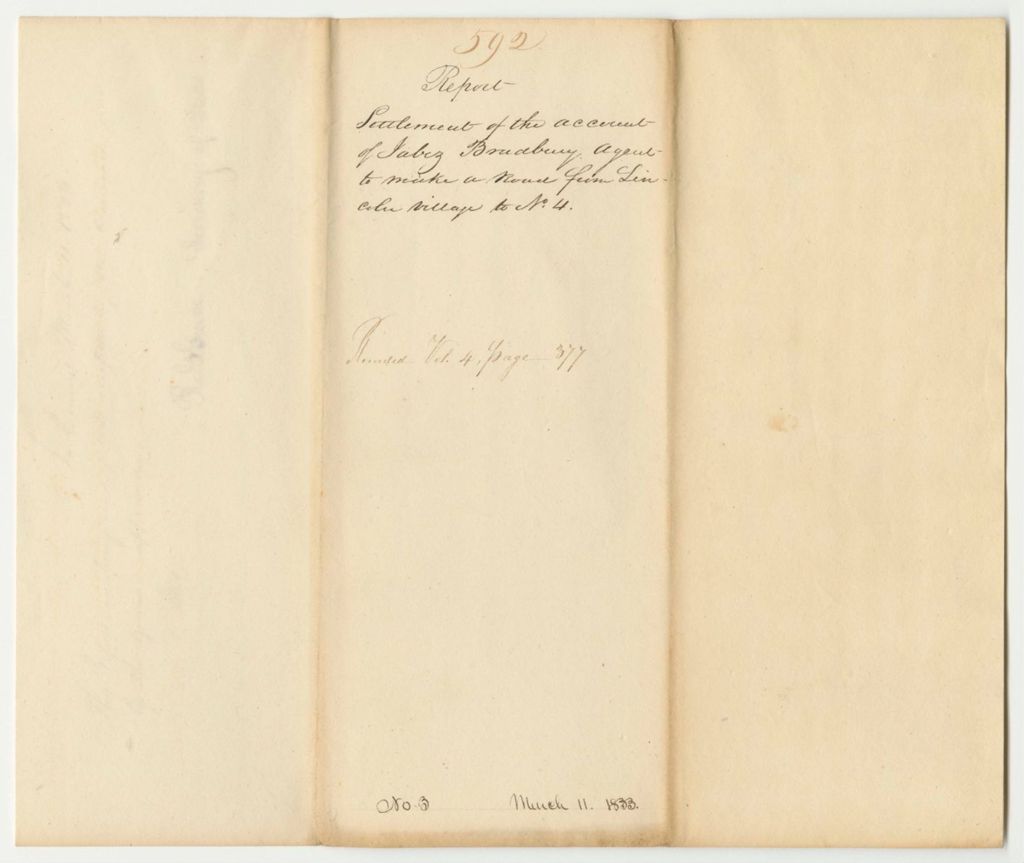 592
Report
Settlement of the account
of Jabez Bradbury, Agent
to make a Road from Lin-
coln village to No. 4.
Recorded Vol. 4, page 377
No 3 March 11. 1833.